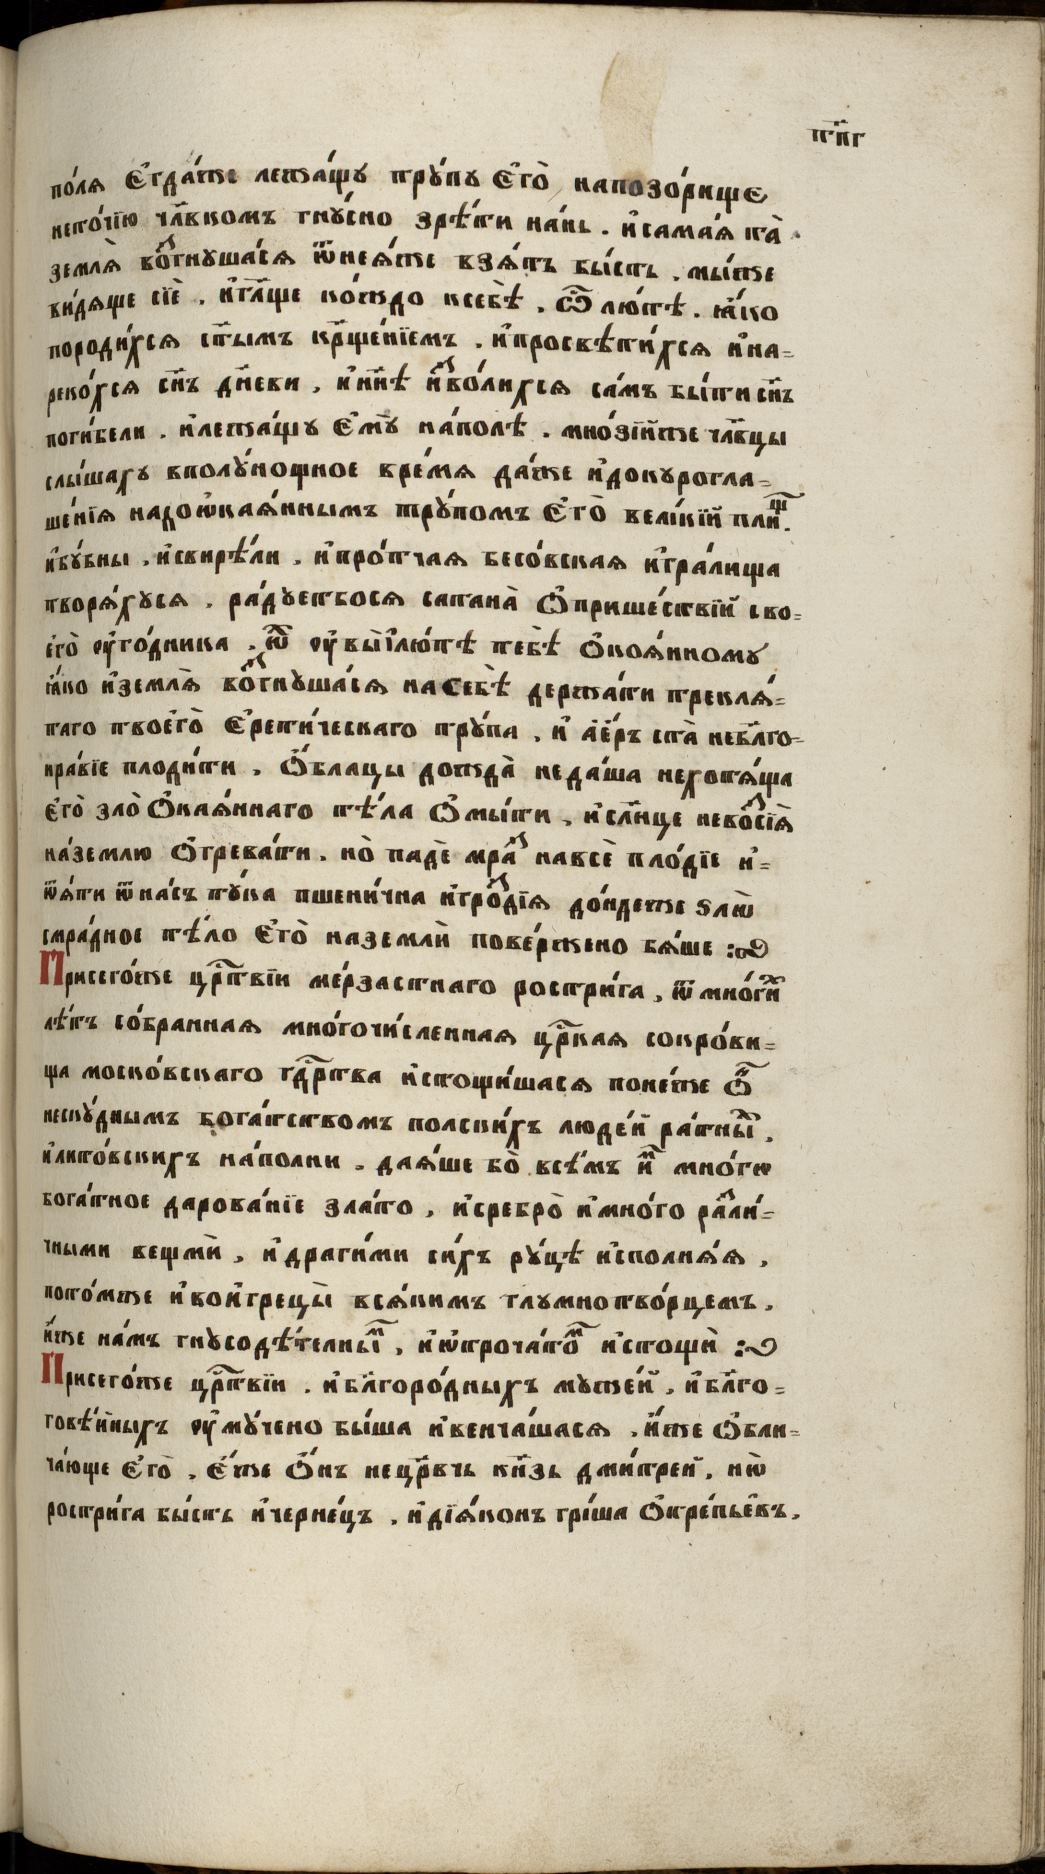 пн҃г
по́лѧ є҆гда́же лежа́щꙋ трꙋ́пꙋ є҆го̀ напозо́рище
несто́чїю чл҃вкомъ гнꙋ́сно зрѣ́ти на́нь . и҆самаѧ та̀
землѧ̀ воз̾гнꙋша́сѧ ѿнеѧ́же взѧ́тъ бы́сть . мы́же
ви́дѧще сїѐ . и҆гл҃ще ко́ждо ксебѣ̀ . ѽ лю́тѣ . ꙗ҆́ко
породи́хсѧ ст҃ымъ крⷭ҇ще́нїемъ . и҆просвѣти́хсѧ и҆на=
реко́хсѧ сн҃ъ дн҃еви . и҆нн҃ѣ и҆з̾во́лихсѧ са́мъ бы́ти сн҃ъ
поги́бели . и҆лежа́щꙋ є҆мꙋ̀ на́полѣ . мно́зїи҆же чл҃вцы
слы́шахꙋ вполꙋ́нощное вре́мѧ да́же и҆докꙋрогла=
ше́нїѧ надоѡ҆каѧ́ннымъ трꙋ́помъ є҆го̀ вели́кїй плищ .
и҆бꙋ́бны . и҆свирѣ́ли . и҆про́тчаѧ бесо́вскаѧ и҆гра́лища
творѧ́хꙋсѧ . ра́дꙋетбосѧ сатана̀ ѡ҆прише́ствїй сво=
є҆го̀ ᲂу҆го́дника . ѽ ᲂу҆вы̀ лю́тѣ тебѣ̀ ѻ҆коѧ́нномꙋ
ꙗ҆́ко и҆землѧ̀ воз̾гнꙋша́сѧ насебѣ̀ держа́ти треклѧ́=
таго твоегѡ̀ є҆рети́ческаго трꙋ́па . и҆ а҆є́ръ ста̀ небл҃го=
нра́вїе плоди́ти . ѻ҆́блацы дождѧ̀ неда́ша нехотѧ́ща
є҆го̀ зло̀ ѻ҆каѧ́ннаго тѣ́ла ѡ҆мы́ти . и҆сл҃нце невоз̾сїѧ̀
на́землю ѻ҆грева́ти . но̀ падѐ мраз̾ навсѐ пло́дїе и҆=
ѿѧ́ти ѿна́съ тꙋ́ка пшени́чна и҆гроз̾дїѧ до́ндеже ѕлѡ
смра́дное тѣ́ло є҆го̀ наземлѝ пове́ржено бѧ́ше :
Присего́же црⷭ҇твїи ме́рзастнаго ростри́га . ѿ мно́гих
лѣ́тъ со́бранная мно́гочи́сленнаѧ црⷭ҇каѧ сокро́ви=
ща моско́вскаго гдⷭ҇рства и҆стощи́шасѧ поне́же ѻ҆н
неску́днымъ бога́тствомъ полски́хъ люде́й ра́тных .
и҆лито́вскихъ на́полни . даѧ́ше бо̀ всѣ́мъ им мно́гѡ
бога́тное дарова́нїе зла́то . и҆сребро̀ и҆мно́го разли́=
чными вещмѝ . и҆драги́ми си́хъ рꙋ́цѣ и҆сполнѧ́ѧ .
пото́мже и҆кои҆грецы̀ всѧ́кимъ глꙋмнотво́рцемъ .
и҆́же на́мъ гнꙋсодѣ́телным . и҆ѡ҆трочатом и҆стощѝ :
Присего́же црⷭ҇твїи . и҆бл҃горо́дныхъ мꙋже́й . и҆бл҃го=
говѣ́йныхъ ᲂу҆мꙋ́чено бы́ша и҆венча́шасѧ . и҆́же ѡ҆бли=
ча́юще є҆го̀ . є҆́же ѻ҆́нъ нецр҃вчь кн҃зь дми́трей . нѡ
ростри́га бы́сть и҆черне́цъ . и҆дїѧ́конъ гри́ша ѻ҆тре́пьєвъ .